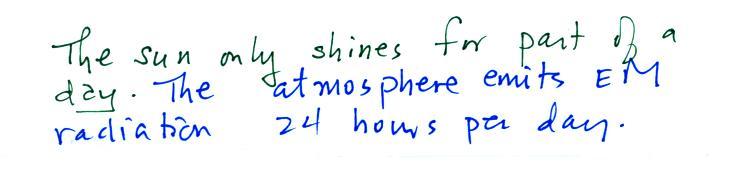 The sun only shines for part of a
day. The atmosphere emits EM
radiation 24 hours per day.